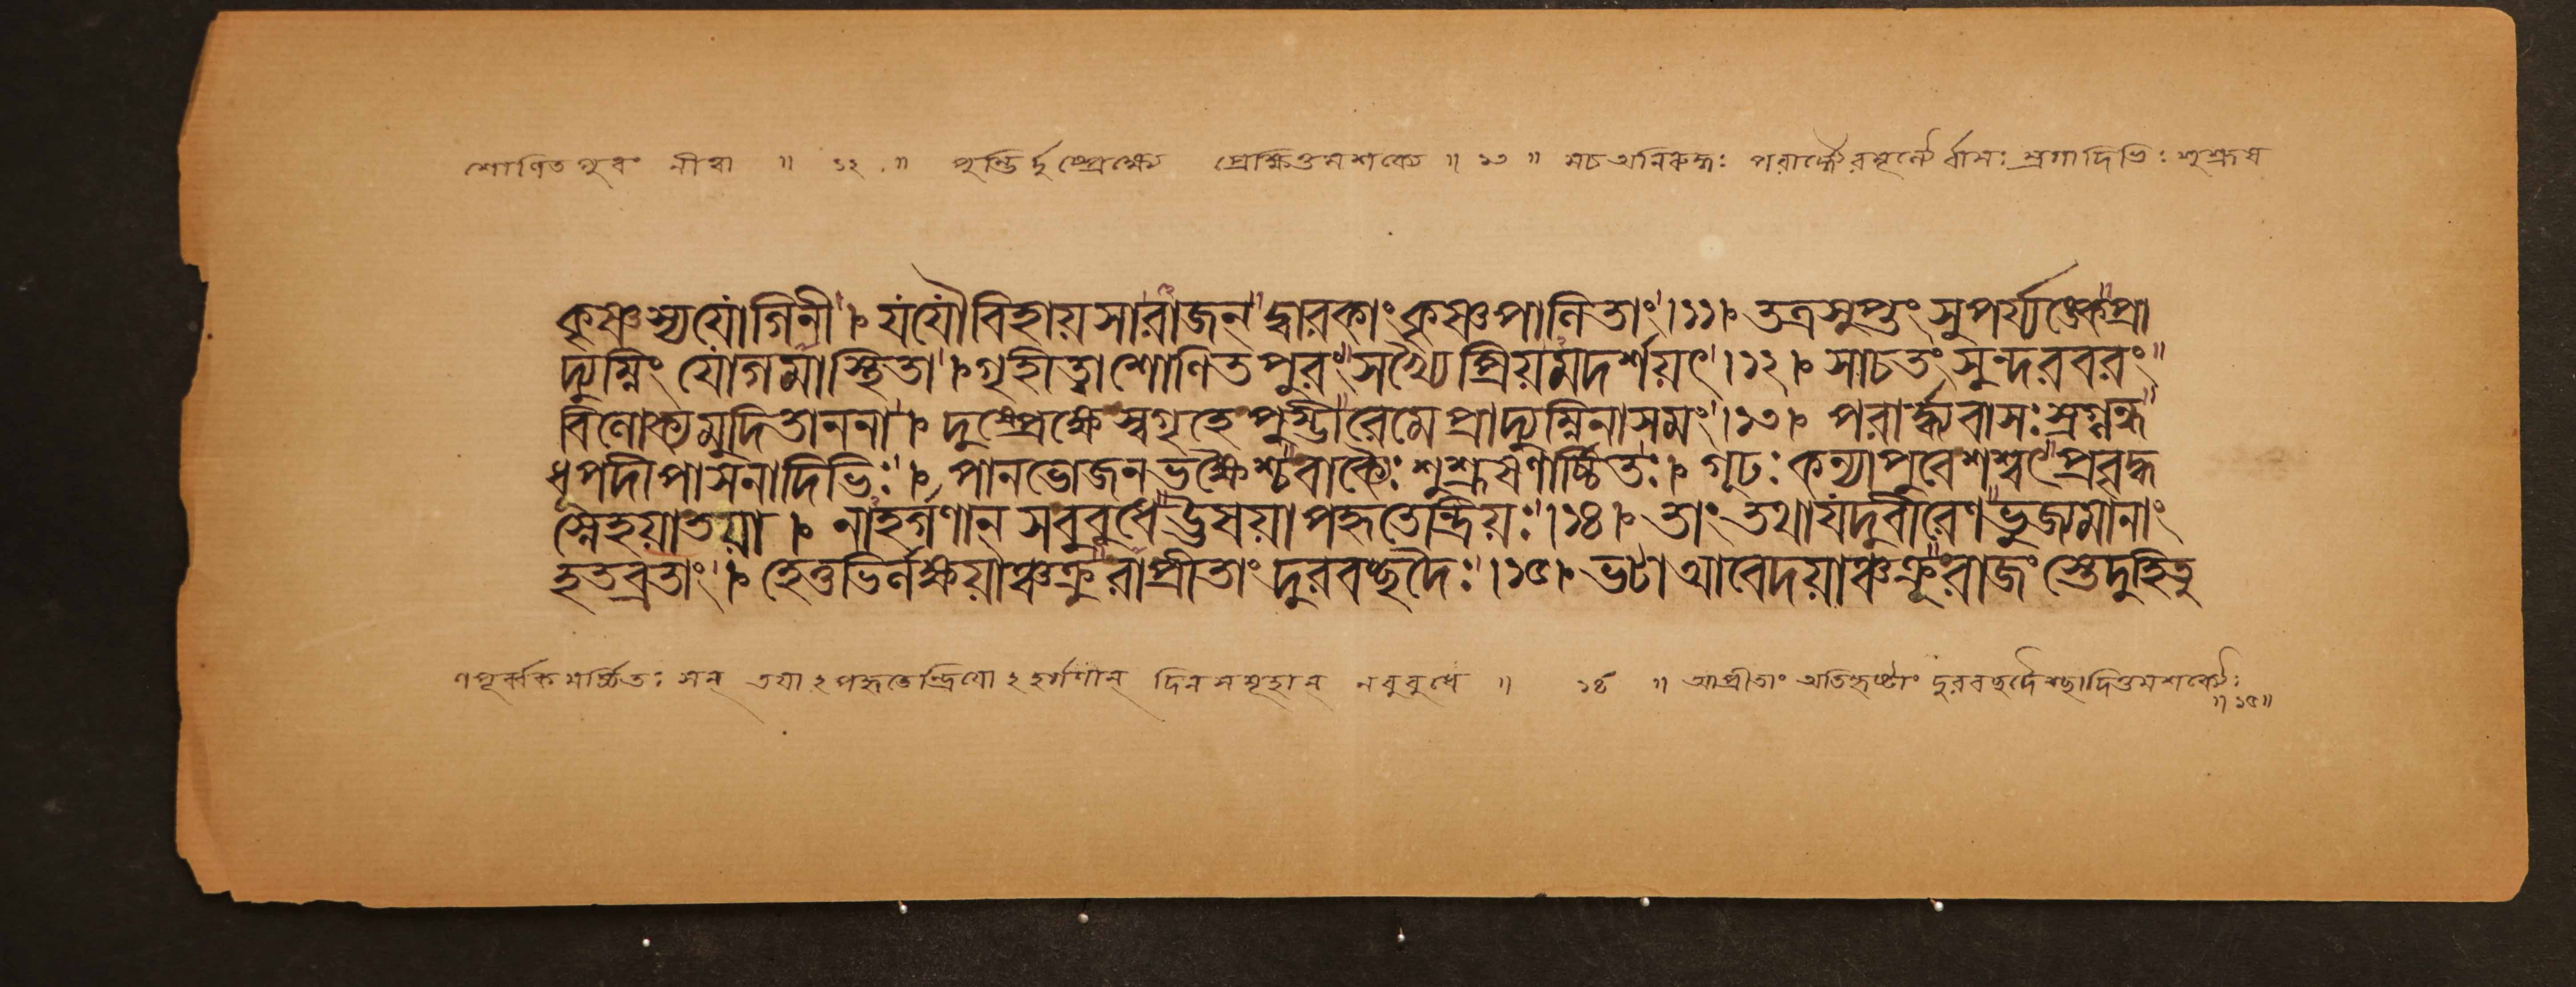 শোণিতপুরং নীত্বা ॥ ১২ ॥ পুম্ভির্দুষ্প্রেক্ষ্যে প্রেক্ষিতুমশক্যে ॥ ১৩ ॥ সচ অনিরুদ্ধঃ পরার্দ্ধ্যৈরমূল্যৈর্বাসঃ স্রগাদিভিঃ শুশ্রূষ
কৃষ্ণস্য যোগিনী । যযৌ বিহায়সা রাজন্ দ্বারকাং কৃষ্ণপালিতাং ।১১। তত্র সুপ্তং সুপর্য্যঙ্কে প্রা
দ্যুম্নিং যোগমাস্থিতা । গৃহিত্বা শোণিতপুরং সখ্যৈ প্রিয়মদর্শয়ৎ ।১২। সাচ তং সুন্দরবরং
বিলোক্য মুদিতাননা । দুষ্প্রেক্ষে স্বগৃহে পুম্ভী রেমে প্রাদ্যুম্নিনা সমং ।১৩। পরার্দ্ধ্যবাসঃ স্রগ্গন্ধ
ধূপদীপাসনাদিভিঃ । পানভোজনভক্ষৈশ্চ বাক্যৈঃ শুশ্রূষণার্চ্চিতঃ । গূঢঃ কন্যাপুরে শশ্বৎ প্রবৃদ্ধ
স্নেহয়া তয়া । নাহর্গণান্ স বুবুধে ঊষয়াপহৃতেন্দ্রিয়ঃ ।১৪। তাং তথা যদুবীরেণ ভুজ্যমানাং
হতব্রতাং । হেতুভির্লক্ষয়াঞ্চক্রুরাপ্রীতাং দুরবচ্ছদৈঃ ।১৫। ভটা আবেদয়াঞ্চক্রূ রাজংস্তে দুহিতু
ণপূর্ব্বকমর্চ্চিতঃ সন্ তয়াঽপহৃতেন্দ্রিয়োঽহর্গণান্ দিনসমূহান্ ন বুবুধে ॥ ১৪ ॥ আপ্রীতাং অতিহৃষ্টাং দুরবচ্ছদৈশ্ছাদিতুমশক্যৈঃ
॥ ১৫ ॥